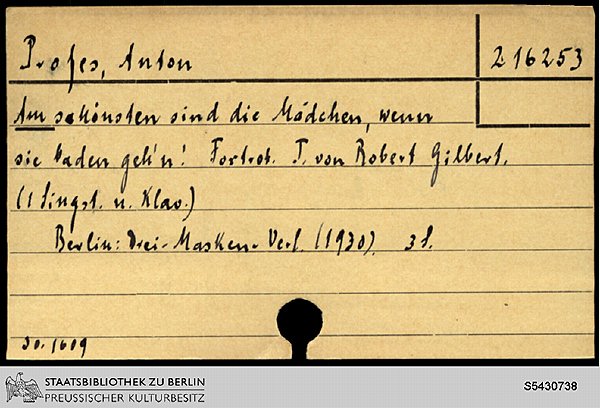 Profes, Anton
216253
Am schönsten sind die Mädchen, wenn
sie baden geh'n! Foxtrot. T. von Robert Gilbert.
(1 Singst. u. Klav.)
Berlin: Drei-Masken-Verl. (1930). 3 S.
30.1609
STAATSBIBLIOTHEK ZU BERLIN
PREUSSISCHER KULTURBESITZ
S5430738